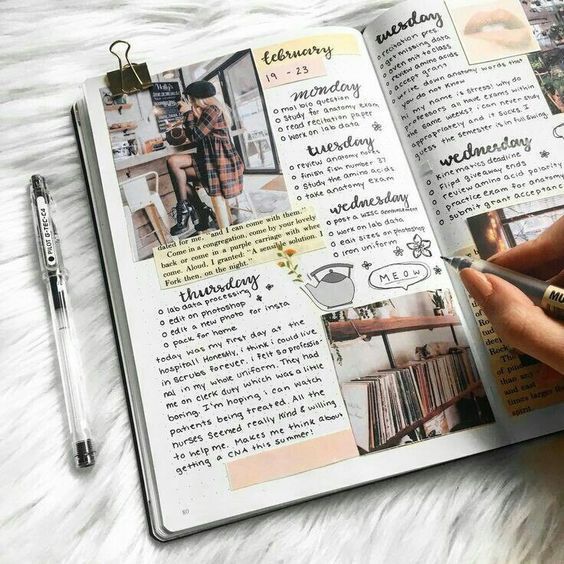 february
19 - 23
monday
o mol bio question 9
o study for anatomy exam
o read recitation paper
o work on lab data
tuesday
o review anatomy notes
o finish fish number 37
o study the amino acids
o take anatomy exam
wednesday
o post a WISC announcement
o work on lab data
o edit sizes on photoshop
o iron uniform
MEOW
dated for me, and I can come with them.
Come in a congregation, come by your lovely
back or come in a purple carriage with whee
come. Aloud, I granted: "A sensible solution. I
Fork then, on the night.
thursday
o lab data processing
o edit on photoshop
o edit a new photo for insta
o pack for home
today was my first day at the
hospital! Honestly, i think i could live
in scrubs forever. i felt so professio-
nal in my whole uniform. They had
me on clerk duty which was a little
boring. I'm hoping i can watch
patients being treated. All the
nurses seemed really kind & willing
to help me. Makes me think about
getting a CNA this summer!
80
tuesday
o recitation pres
o get missing data
o even mit to class
o review amino acids
o accept grant
o write down anatomy words that
you do not know
my name is stress! why do
professors all have exams within
the same week? i can never study
appropriately and it sucks. I
guess the semester is in full swing
wednesday
o kinematics deadline
o Flipd giveaway ends
o review amino acid polarity
o practice exam for anatomy
o submit grant acceptance
PILOT G-TEC-C4
MU